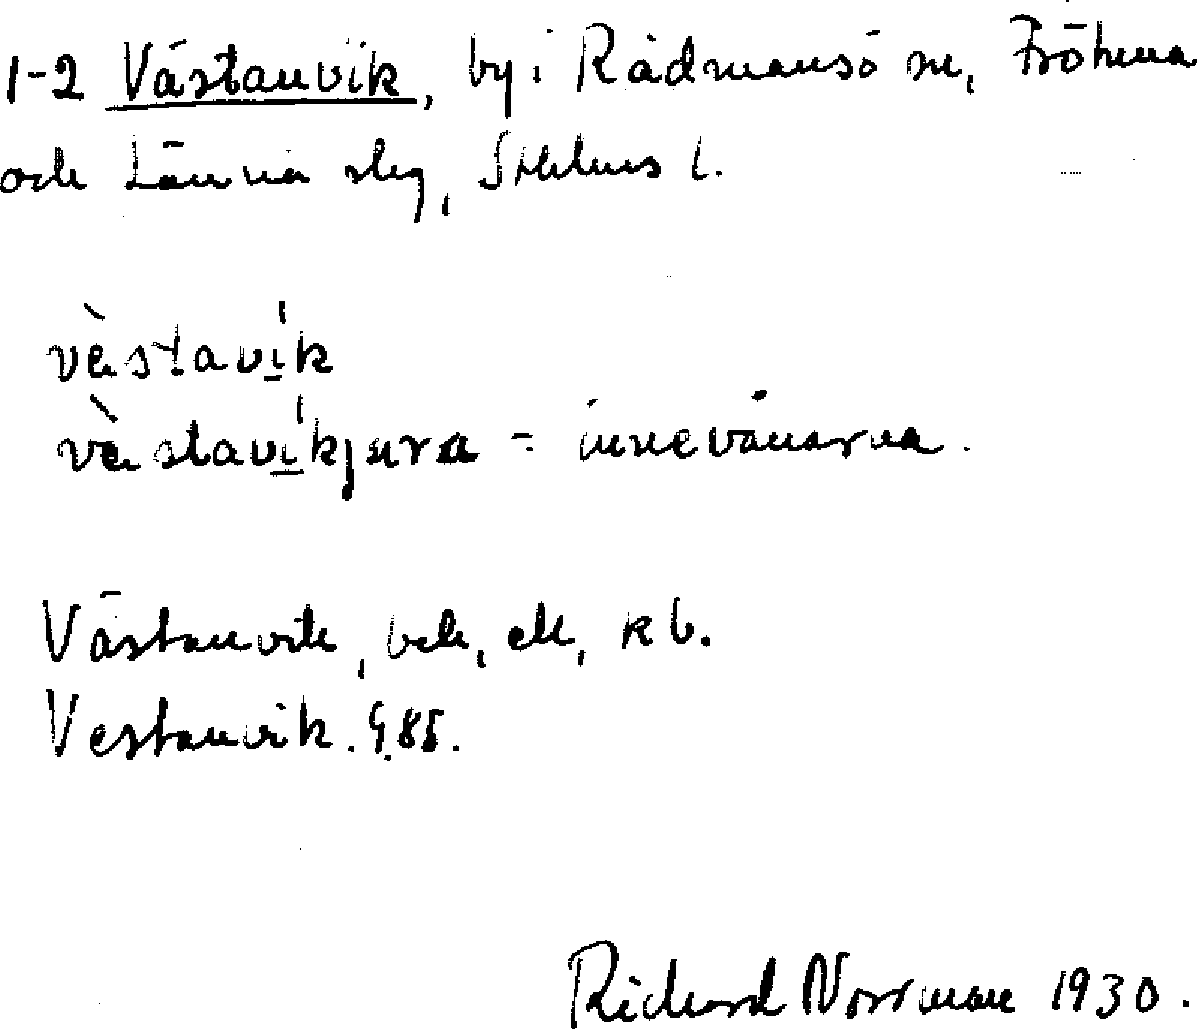 1-2 Västanvik, by i Rådmansö sn, Frötuna
och Länna slg, Sthlms l.
vèstavík
vèstavíkjɘra = innevånarna.
Västanvik, bck, ek, kb.
Vestanvik. G.85.
Richard Norrman 1930.